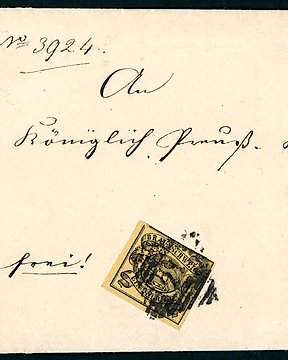 No 3924.
An
Königlich Preuß.
frei!